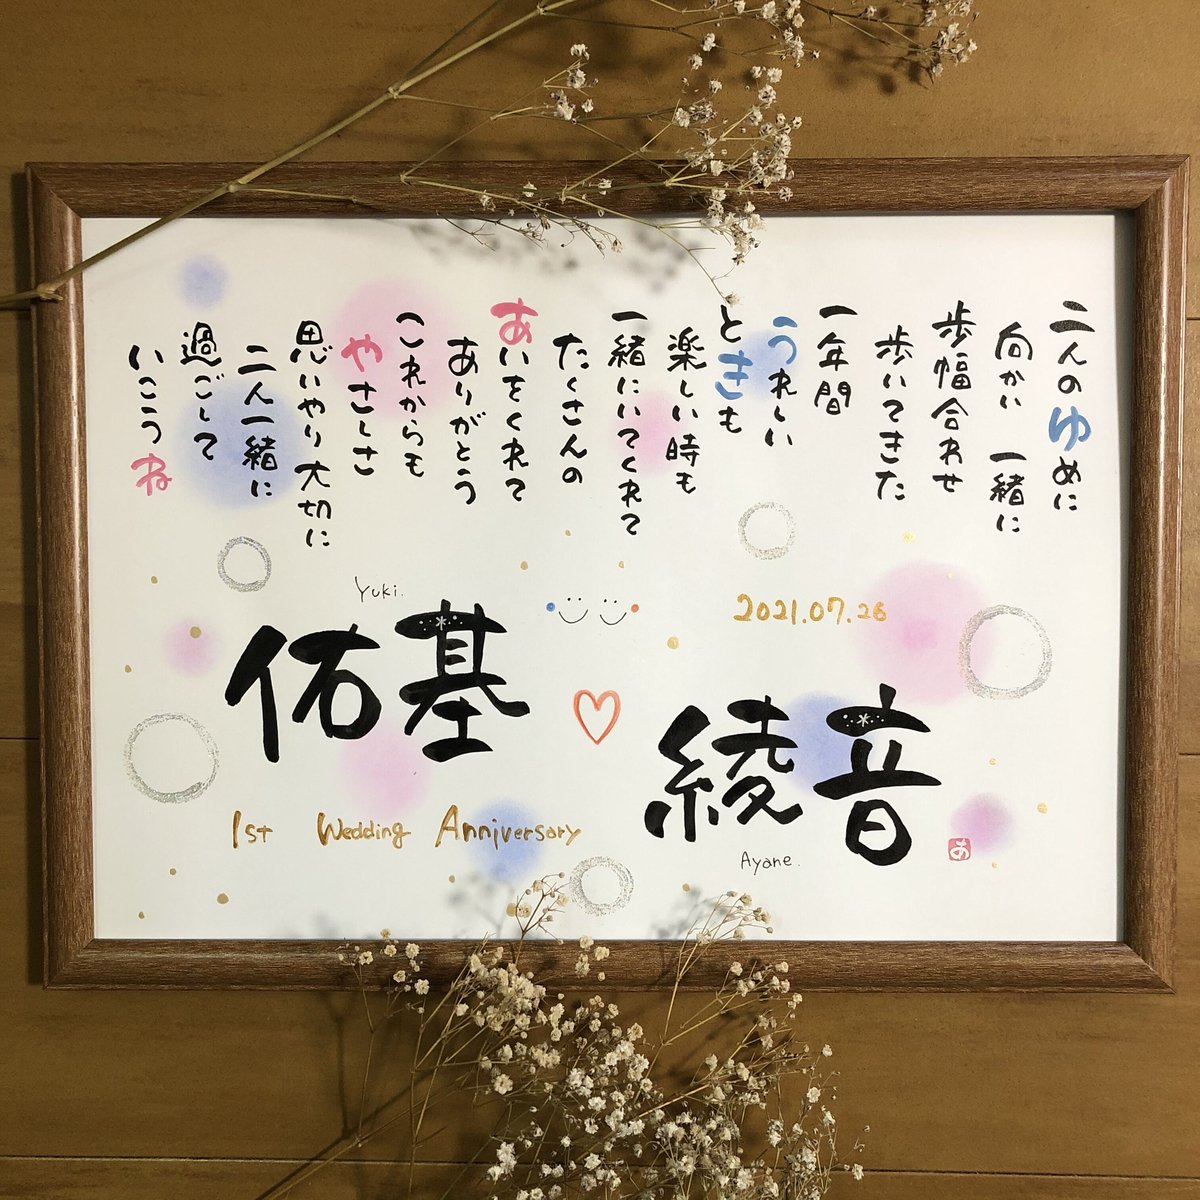 二人のゆめに
向かい 一緒に
歩幅合わせ
歩いてきた
一年間
うれしい
ときも
楽しい時も
一緒にいてくれて
たくさんの
あいをくれて
ありがとう
これからも
やさしさ
思いやり大切に
二人一緒に
過ごして
いこうね
2021.07.26
Yuki.
佑基
綾音
Ayane.
1st Wedding Anniversary
あ